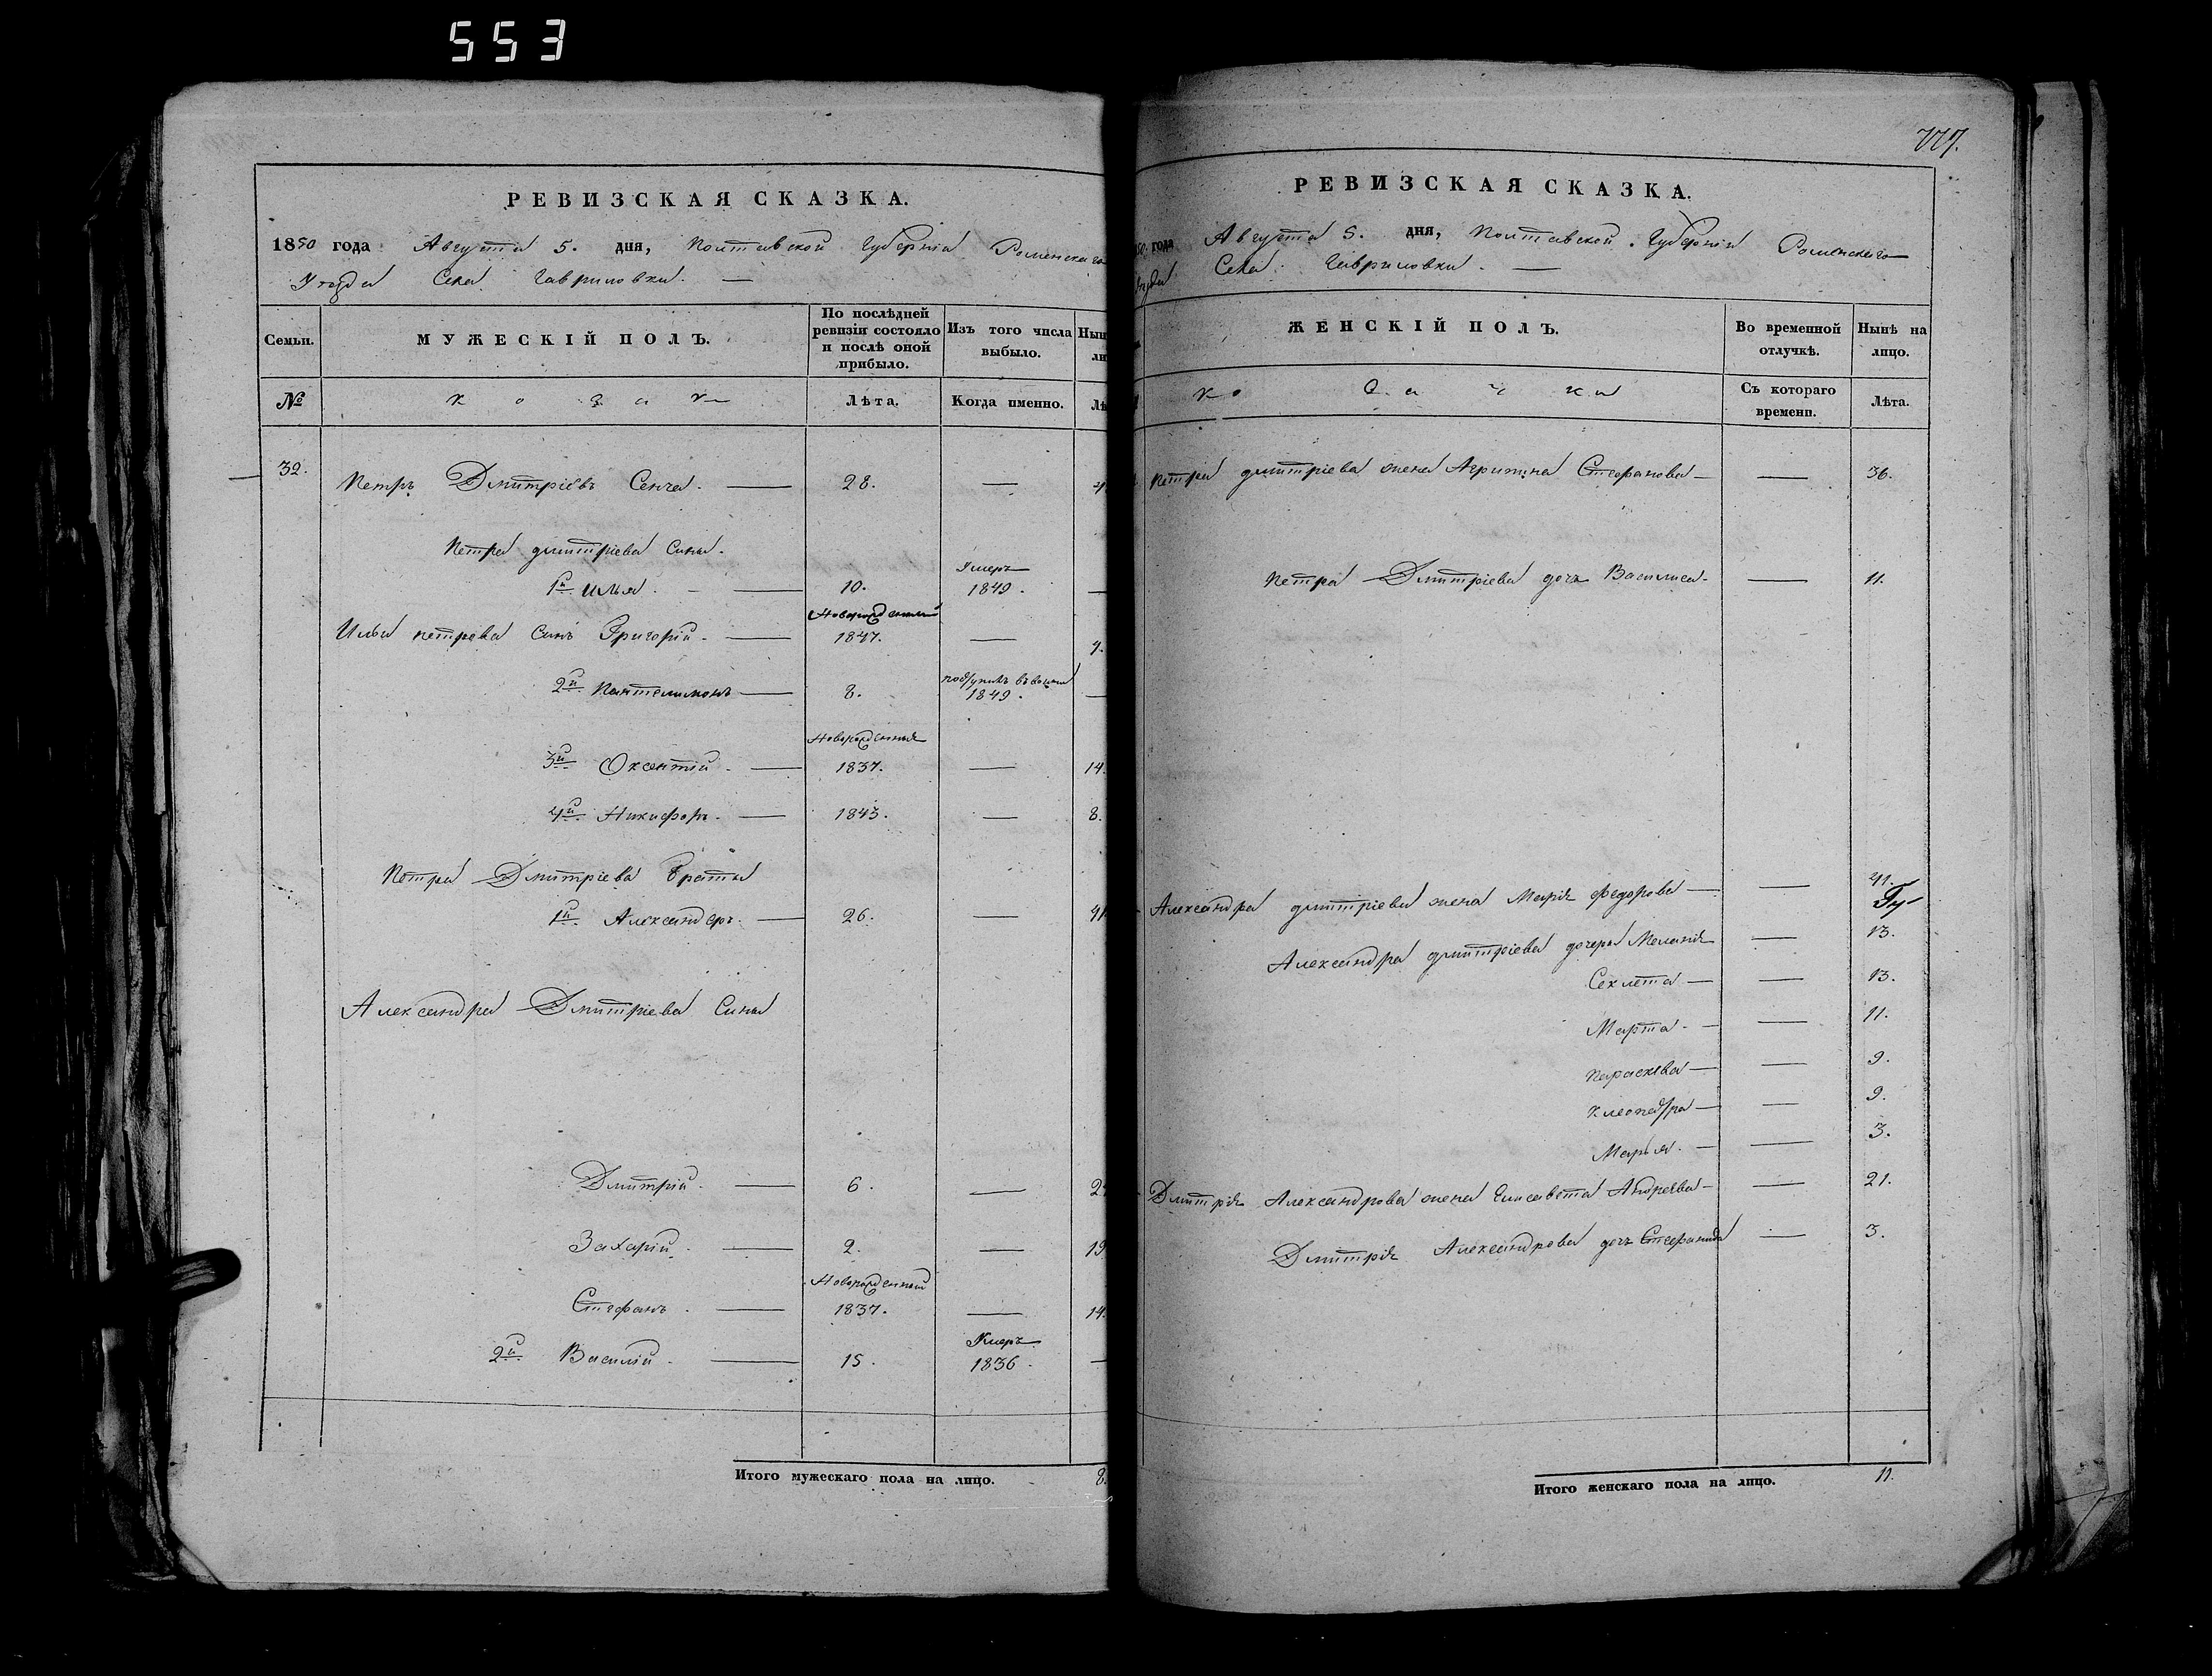 553
РЕВИЗСКАЯ СКАЗКА.
1850 года Августа 5. дня, Полтавской Губерніи Роменскаго
Уезда Села Гавриловки. —
Семьи.
МУЖЕСКІЙ ПОЛЪ.
По послѣдней ревизіи состояло и послѣ оной прибыло.
Изъ того числа выбыло.
№
козаки
Лѣта.
Когда именно.
32. Петръ Дмитріевъ Сенча. — 28. —
Петра дмитріева сины.
Умеръ
1й Илья. — 10. 1849. —
Новорожденный
Ильи петрова Синъ Григорій. — 1847. — 4.
2й Пантелимонъ — 8. 1849. —
Новорожденныя
3й Оксентій. — 1837. — 14.
4й Никифоръ. — 1843. — 8.
Петра Дмитріева браты
1й Александеръ. — 26. — 41
Александра Дмитріева Сины
Дмитрій. — 6. — 2
Захарій. — 2. — 19
Новорожденный
Стефанъ. — 1837. — 14.
Умеръ
2й Василій. — 15. 1836. —
Итого мужескаго пола на лицо. 8.
777.
РЕВИЗСКАЯ СКАЗКА.
года Августа 5. дня, Полтавской. Губерніи Роменскаго
Села Гавриловки. —
ЖЕНСКІЙ ПОЛЪ.
Во временной отлучкѣ.
Нынѣ на лицо.
козачки
Съ котораго времени.
Лѣта.
Петра дмитріева жена Агрипина Стефанова — — 36.
Петра Дмитріева дочь Василиса. — 11.
Александра дмитріева жена Марія федорова — — 41.
Александра дмитріева дочеры Меланія — 13.
Секлета — — 13.
Марта. — — 11.
Параскева — — 9.
Клеопатра — — 9.
Марья. — — 3.
Дмитрія Александрова жена Елисавета Андреева — — 21.
Дмитрія Александрова дочь Стефанида — 3.
Итого женскаго пола на лицо. 11.